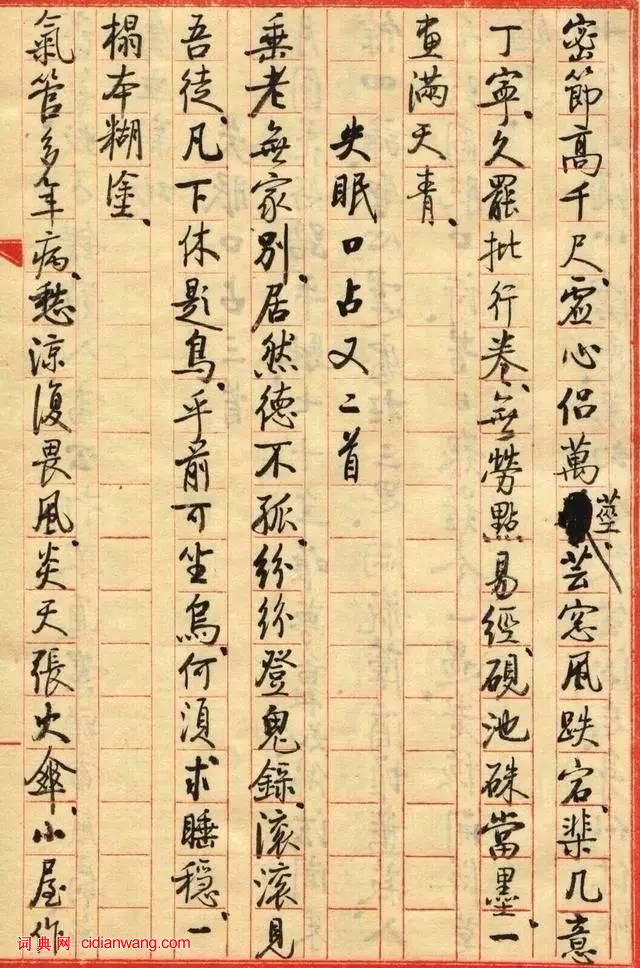 密節高千尺、虛心侶萬莖、芸窓風跌宕、棐几意
丁寧、久罷批行卷、無勞點易經、硯池硃當墨、一
畫滿天青、
失眠口占又二首
垂老無家別、居然德不孤、紛紛登鬼錄、滾滾見
吾徒、凡下休題鳥、乎前可坐烏、何須求睡穩、一
榻本糊塗、
氣管多年病、愁涼復畏風、炎天張火傘、小屋作
词典网 cidianwang.com